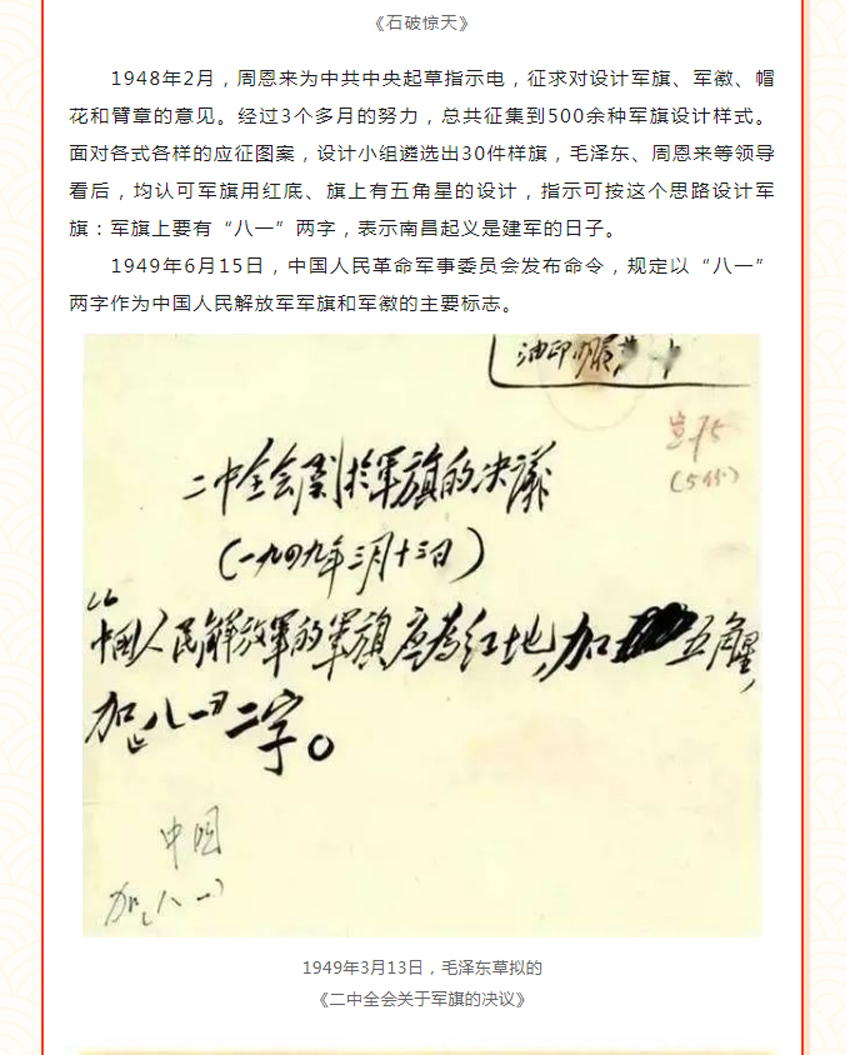 《石破惊天》
1948年2月，周恩来为中共中央起草指示电，征求对设计军旗、军徽、帽
花和臂章的意见。经过3个多月的努力，总共征集到500余种军旗设计样式。
面对各式各样的应征图案，设计小组遴选出30件样旗，毛泽东、周恩来等领导
看后，均认可军旗用红底、旗上有五角星的设计，指示可按这个思路设计军
旗：军旗上要有“八一”两字，表示南昌起义是建军的日子。
1949年6月15日，中国人民革命军事委员会发布命令，规定以“八一”
两字作为中国人民解放军军旗和军徽的主要标志。
油印
(5份)
二中全会關於軍旗的决議
(一九四九年三月十三日)
中國人民解放軍的軍旗應為红地，加五角星，
加「八一」二字。
中国
加「八一」
1949年3月13日，毛泽东草拟的
《二中全会关于军旗的决议》